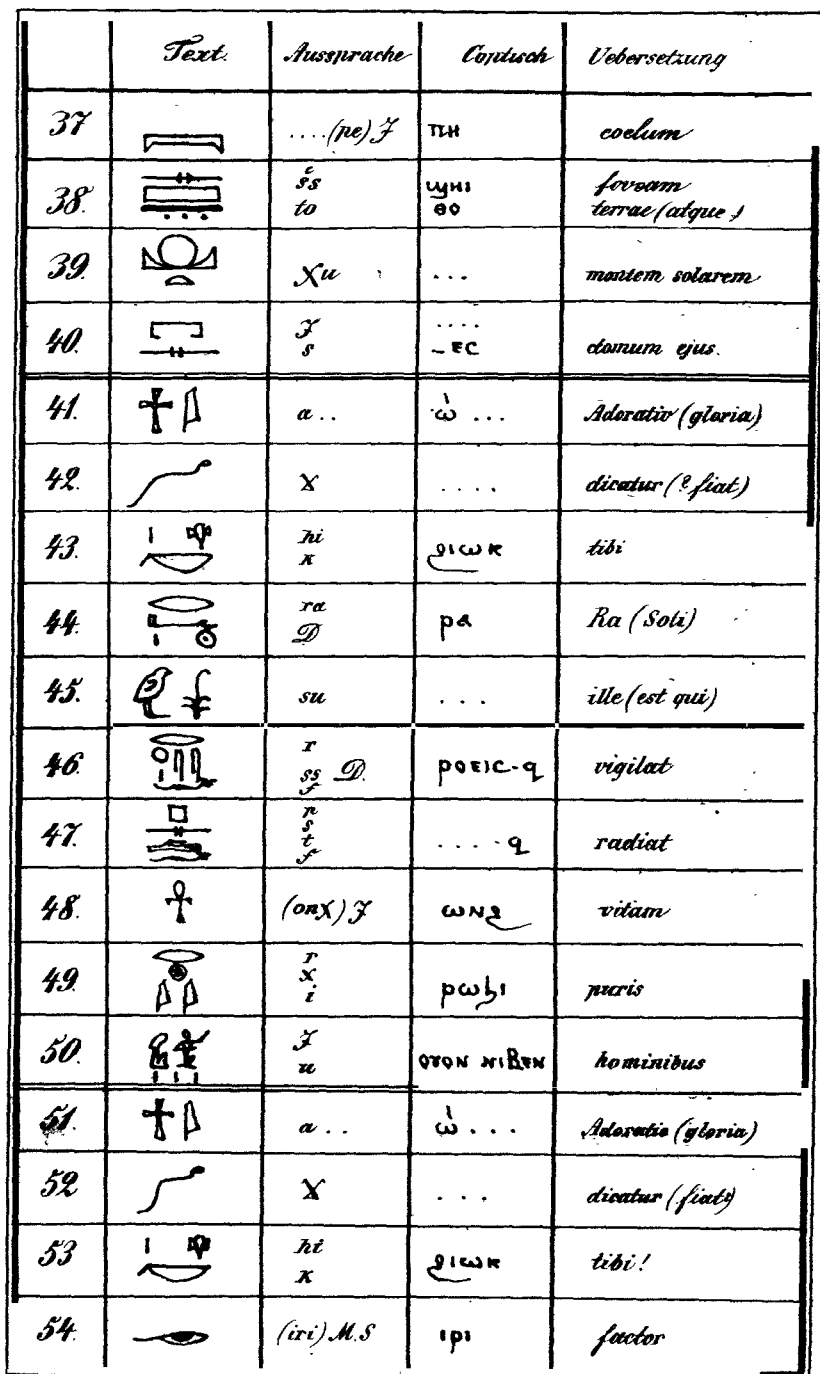 Text. Aussprache Coptisch Uebersetzung
37 ....(pe) J ⲡⲏ coelum
38. šs ϣⲏⲓ foveam
to ⲑⲟ terrae (atque)
39. Xu ... montem solarem
40. J ....
s – ⲉⲥ domum ejus.
41. a .. ὠ ... Adoratio (gloria)
42. X .... dicatur (? fiat)
43. hi ϩⲓⲱⲕ tibi
k
44. ra ⲣⲁ Ra (Soli)
D
45. su ... ille (est qui)
46. r ⲣⲟⲉⲓⲥ-ϥ vigilat
ss D.
f
47. p .... ϥ radiat
s
t
f
48. (onX) J ⲱⲛϩ vitam
49. r ⲣⲱϧⲓ puris
X
i
50. J ⲟⲩⲟⲛ ⲛⲓⲃⲉⲛ hominibus
u
51. a .. ὠ ... Adoratio (gloria)
52 X ... dicatur (fiat)
53 hi ϩⲓⲱⲕ tibi!
k
54. (iri) M.S ⲓⲣⲓ factor